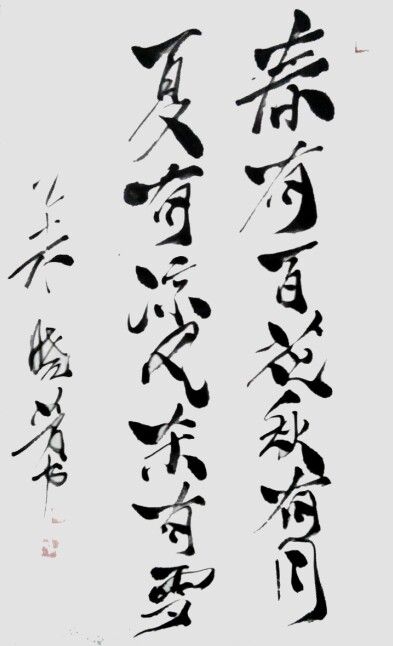 春有百花秋有月
夏有凉风冬有雪
晓芳书